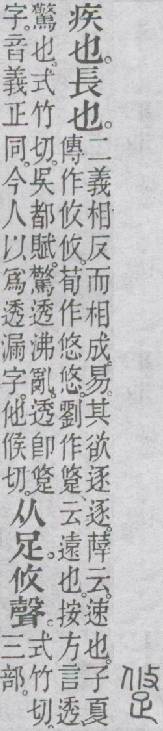 疾也。長也。
二義相反而相成。易。其欲逐逐。薛云。速也。子夏
傳作攸攸。荀作悠悠。劉作跾。云遠也。按方言。透
驚也。式竹切。吳都賦。驚透沸亂。透卽跾
字。音義正同。今人以爲透漏字。他候切。
从足攸聲。
式竹切。
三部。